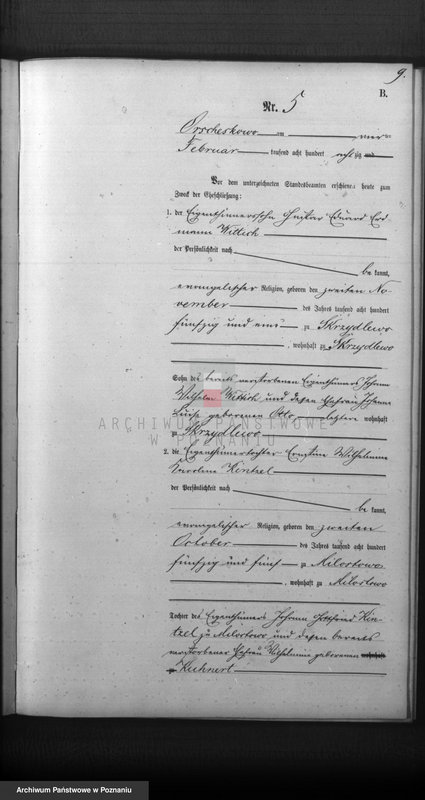 9.
B.
Nr. 5
Orscheskowo am vier
Februar tausend acht hundert achtzig und
Vor dem unterzeichneten Standesbeamten erschienen heute zum
Zweck der Eheschließung:
1. der Eigenthümerssohn Gustav Eduard Erd
mann Wittich
der Persönlichkeit nach
be kannt,
evangelischer Religion, geboren den zweiten No
vember des Jahres tausend acht hundert
fünfzig und eins zu Skrzydlewo
, wohnhaft zu Skrzydlewo
Sohn des bereits verstorbenen Eigenthümers Johann
Wilhelm Wittich und dessen Ehefrau Johanna
Luise geborenen letztere wohnhaft
ARCHIWUM PAŃSTWOWE
W POZNANIU
zu Skrzydlewo
2. die Eigenthümertochter Ernstine Wilhelmine
Karoline Kintzel
der Persönlichkeit nach
be kannt,
evangelischer Religion, geboren den zweiten
October des Jahres tausend acht hundert
fünfzig und fünf zu Milostowo
, wohnhaft zu Milostowo
Tochter des Eigenthümers Johann Gottfried Kin-
tzel zu Milostowo und dessen bereits
verstorbener Ehefrau Wilhelmine geborenen wohnhaft
zu Kuhnert
Archiwum Państwowe w Poznaniu